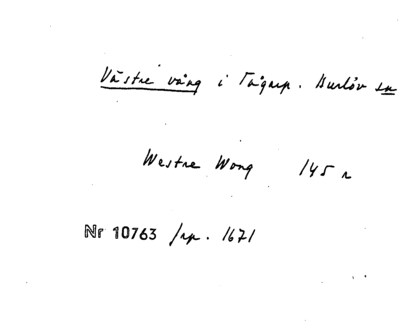 Västre vång i Tågarp. Burlöv sn
Westre Wong 145 r
Nr 10763 /rp. 1671